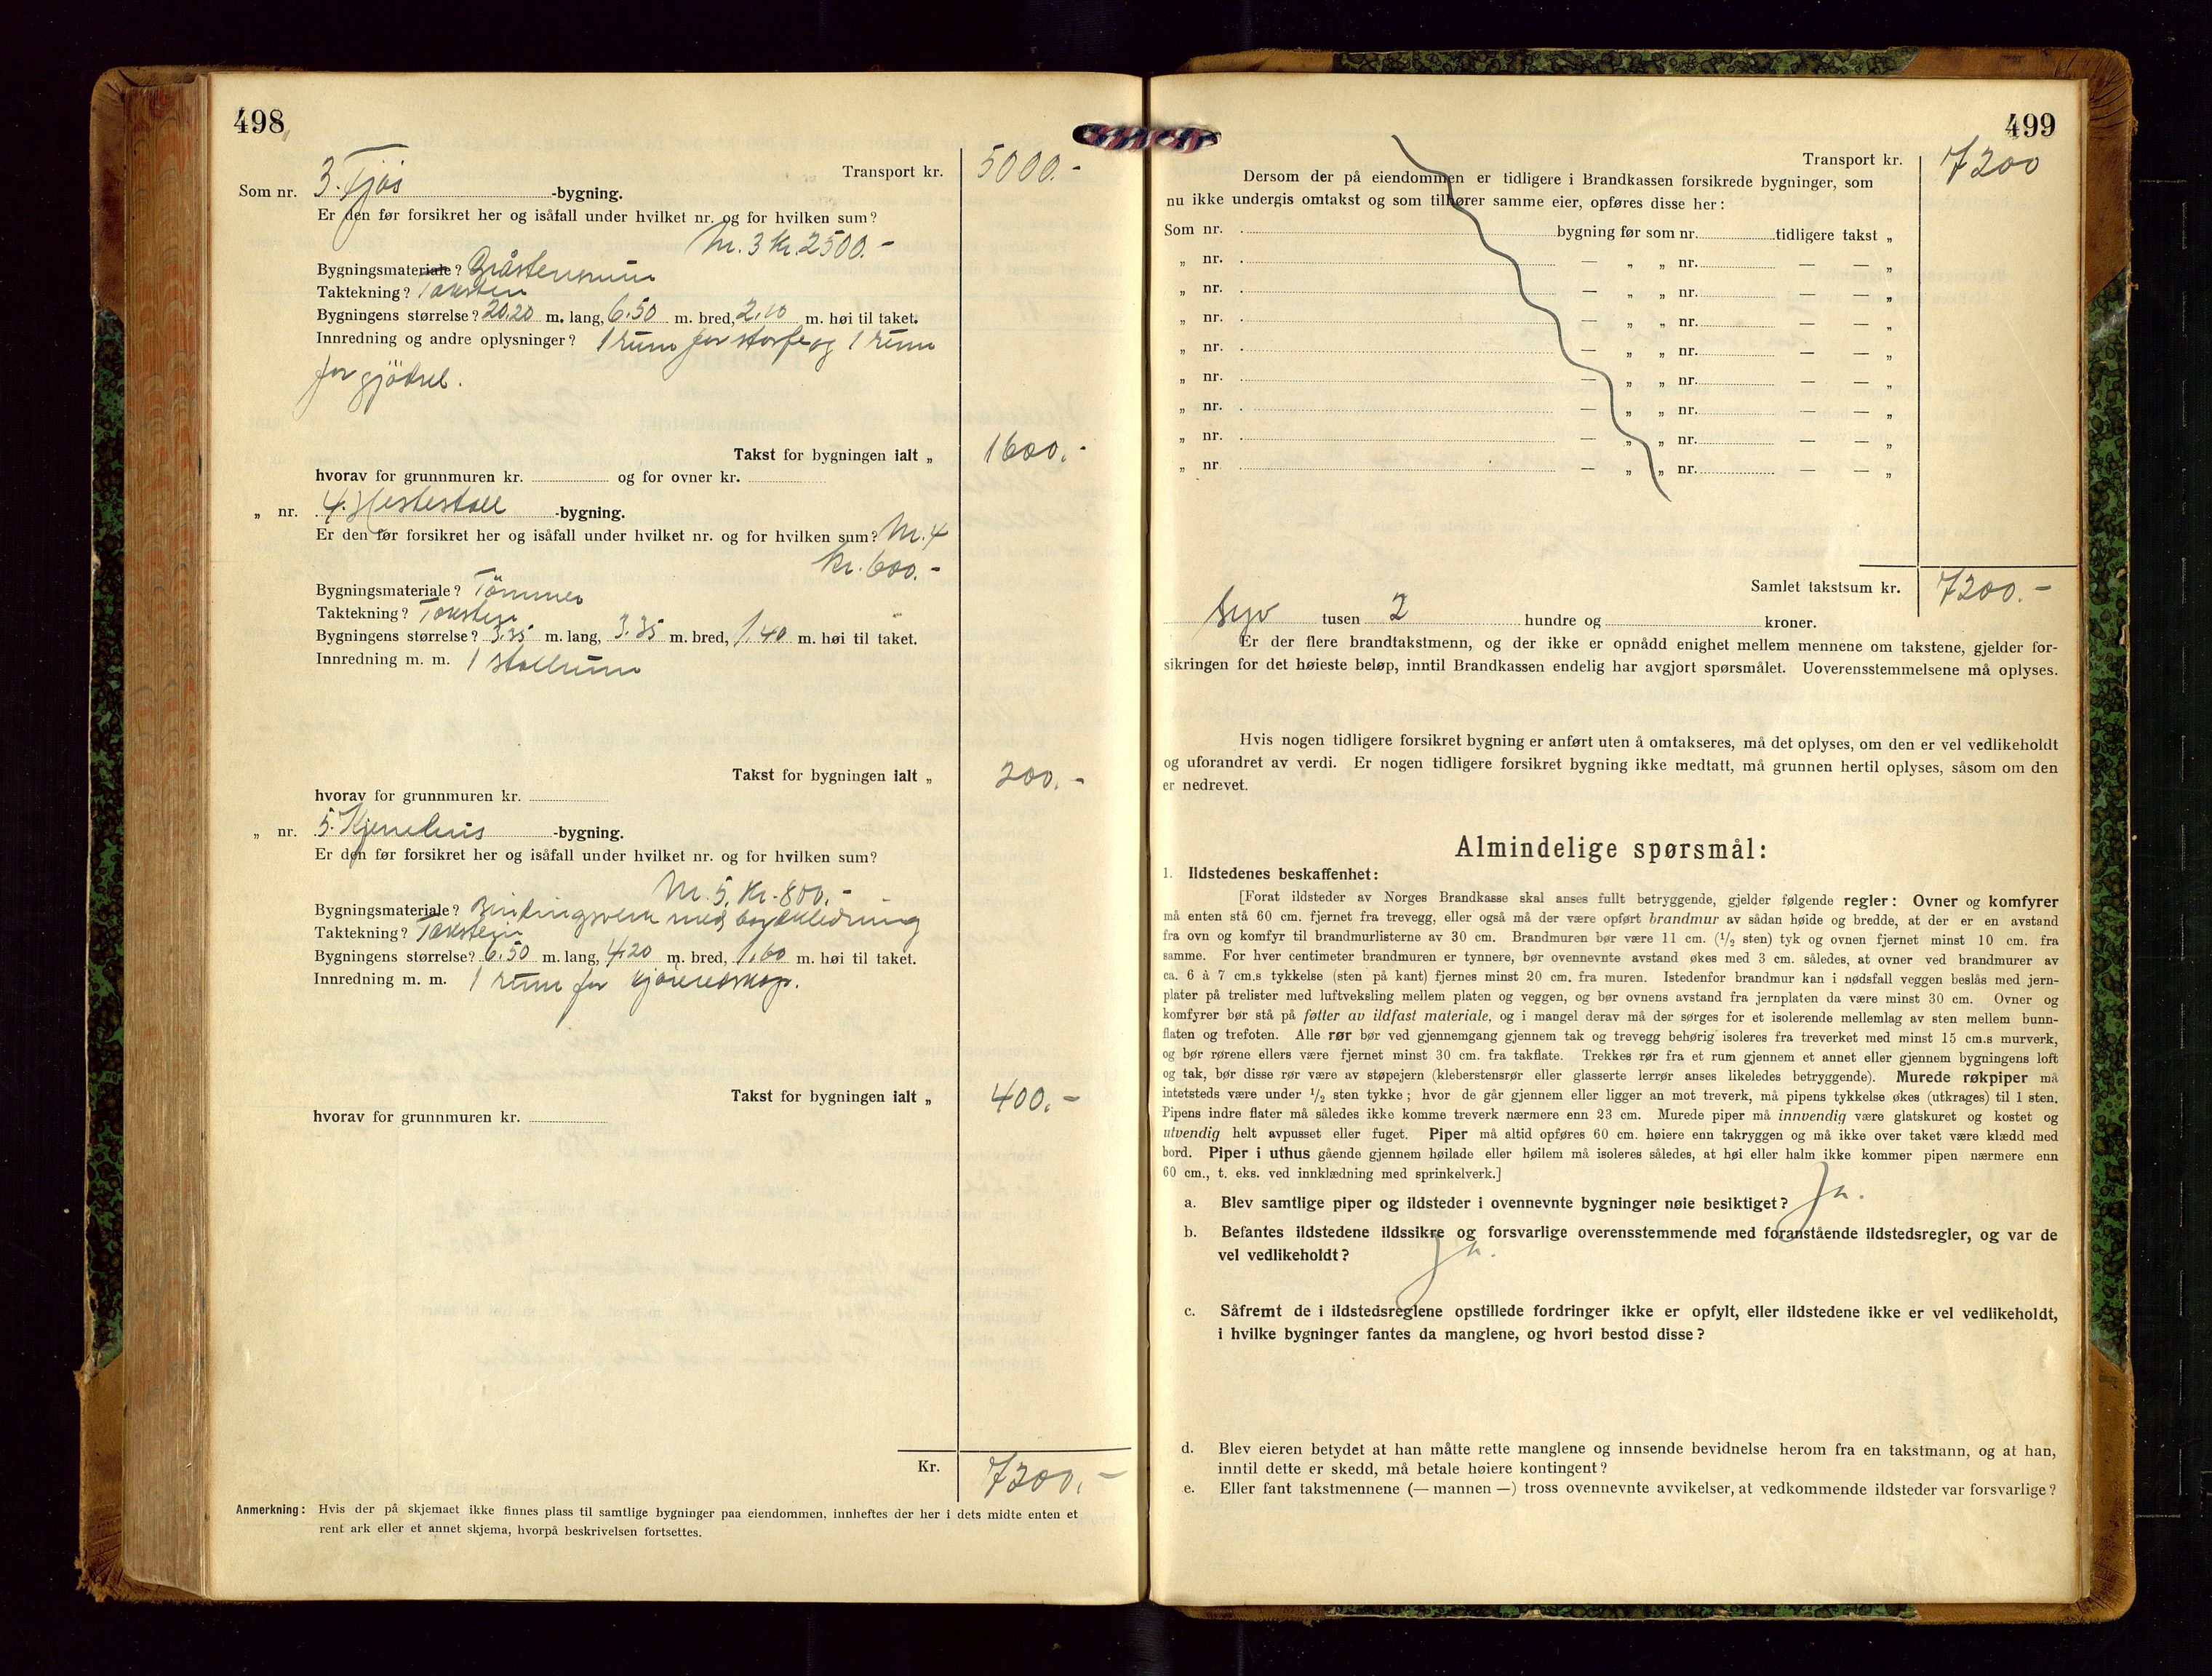 498
Transport kr. 5000.-
Som nr. 3. Fjøs -bygning.
Er den før forsikret her og isåfall under hvilket nr. og for hvilken sum?
Nr. 3 Kr. 2500.-
Bygningsmateriale? Gråstensmur
Taktekning? Taksten
Bygningens størrelse? 20.20 m. lang, 6.50 m. bred, 2.10 m. høi til taket.
Innredning og andre oplysninger? 1 rum for storfe og 1 rum
for gjödsel.
Takst for bygningen ialt „ 1600.-
hvorav for grunnmuren kr. og for ovner kr.
„ nr. 4. Hestestall -bygning.
Er den før forsikret her og isåfall under hvilket nr. og for hvilken sum? Nr. 4
Kr. 600.-
Bygningsmateriale? Tömmer
Taktekning? Taksten
Bygningens størrelse? 3.35 m. lang, 3.35 m. bred, 1.40 m. høi til taket.
Innredning m. m. 1 stallrum
Takst for bygningen ialt „ 200.-
hvorav for grunnmuren kr.
„ nr. 5. -bygning.
Er den før forsikret her og isåfall under hvilket nr. og for hvilken sum?
Nr. 5. Kr. 800.-
Bygningsmateriale? Bindingsverk med bordkledning
Taktekning? Taksten
Bygningens størrelse? 6.50 m. lang, 4.20 m. bred, 1.60 m. høi til taket.
Innredning m. m. 1 rum for kjöreredskap.
Takst for bygningen ialt „ 400.-
hvorav for grunnmuren kr.
Kr. 7200.-
Anmerkning: Hvis der på skjemaet ikke finnes plass til samtlige bygninger paa eiendommen, innheftes der her i dets midte enten et
rent ark eller et annet skjema, hvorpå beskrivelsen fortsettes.
499
Transport kr. 7200
Dersom der på eiendommen er tidligere i Brandkassen forsikrede bygninger, som
nu ikke undergis omtakst og som tilhører samme eier, opføres disse her:
Som nr. bygning før som nr. tidligere takst „
„ nr. — „ „ nr. — — „
„ nr. — „ „ nr. — — „
„ nr. — „ „ nr. — — „
„ nr. — „ „ nr. — — „
„ nr. — „ „ nr. — — „
„ nr. — „ „ nr. — — „
„ nr. — „ „ nr. — — „
„ nr — „ „ nr. — — „
Samlet takstsum kr. 7200.-
Syv tusen 2 hundre og kroner.
Er der flere brandtakstmenn, og der ikke er opnådd enighet mellem mennene om takstene, gjelder for-
sikringen for det høieste beløp, inntil Brandkassen endelig har avgjort spørsmålet. Uoverensstemmelsene må oplyses.
Hvis nogen tidligere forsikret bygning er anført uten å omtakseres, må det oplyses, om den er vel vedlikeholdt
og uforandret av verdi. Er nogen tidligere forsikret bygning ikke medtatt, må grunnen hertil oplyses, såsom om den
er nedrevet.
Almindelige spørsmål:
1. Ildstedenes beskaffenhet:
[Forat ildsteder av Norges Brandkasse skal anses fullt betryggende, gjelder følgende regler: Ovner og komfyrer
må enten stå 60 cm. fjernet fra trevegg, eller også må der være opført brandmur av sådan høide og bredde, at der er en avstand
fra ovn og komfyr til brandmurlisterne av 30 cm. Brandmuren bør være 11 cm. (1/2 sten) tyk og ovnen fjernet minst 10 cm. fra
samme. For hver centimeter brandmuren er tynnere, bør ovennevnte avstand økes med 3 cm. således, at ovner ved brandmurer av
ca. 6 à 7 cm.s tykkelse (sten på kant) fjernes minst 20 cm. fra muren. Istedenfor brandmur kan i nødsfall veggen beslås med jern-
plater på trelister med luftveksling mellem platen og veggen, og bør ovnens avstand fra jernplaten da være minst 30 cm. Ovner og
komfyrer bør stå på føtter av ildfast materiale, og i mangel derav må der sørges for et isolerende mellemlag av sten mellem bunn-
flaten og trefoten. Alle rør bør ved gjennemgang gjennem tak og trevegg behørig isoleres fra treverket med minst 15 cm.s murverk,
og bør rørene ellers være fjernet minst 30 cm. fra takflate. Trekkes rør fra et rum gjennem et annet eller gjennem bygningens loft
og tak, bør disse rør være av støpejern (kleberstensrør eller glasserte lerrør anses likeledes betryggende). Murede røkpiper må
intetsteds være under 1/2 sten tykke; hvor de går gjennem eller ligger an mot treverk, må pipens tykkelse økes (utkrages) til 1 sten.
Pipens indre flater må således ikke komme treverk nærmere enn 23 cm. Murede piper må innvendig være glatskuret og kostet og
utvendig helt avpusset eller fuget. Piper må altid opføres 60 cm. høiere enn takryggen og må ikke over taket være klædd med
bord. Piper i uthus gående gjennem høilade eller høilem må isoleres således, at høi eller halm ikke kommer pipen nærmere enn
60 cm., t. eks. ved innklædning med sprinkelverk.]
a. Blev samtlige piper og ildsteder i ovennevnte bygninger nøie besiktiget? Ja.
b. Befantes ildstedene ildssikre og forsvarlige overensstemmende med foranstående ildstedsregler, og var de
vel vedlikeholdt? Ja.
c. Såfremt de i ildstedsreglene opstillede fordringer ikke er opfylt, eller ildstedene ikke er vel vedlikeholdt,
i hvilke bygninger fantes da manglene, og hvori bestod disse?
d. Blev eieren betydet at han måtte rette manglene og innsende bevidnelse herom fra en takstmann, og at han,
inntil dette er skedd, må betale høiere kontingent?
e. Eller fant takstmennene (— mannen —) tross ovennevnte avvikelser, at vedkommende ildsteder var forsvarlige?